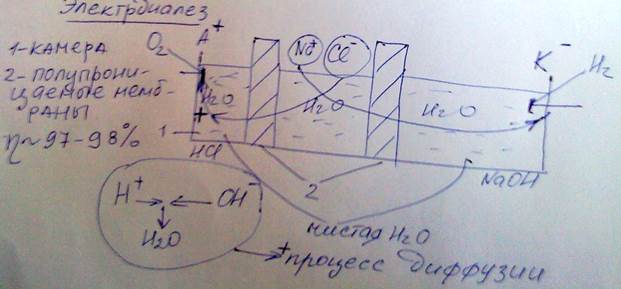 Электрдиалез
1-КАМЕРА
2-полупрони-
цаемые мемб-
РАНЫ
η~97-98%
O₂
A⁺
Na⁺
Cl⁻
K⁻
H₂
H₂O
H₂O
H₂O
+
1
HCl
2
NaOH
H⁺ → ← OH⁻
↓
H₂O
чистая H₂O
+процесс диффузии